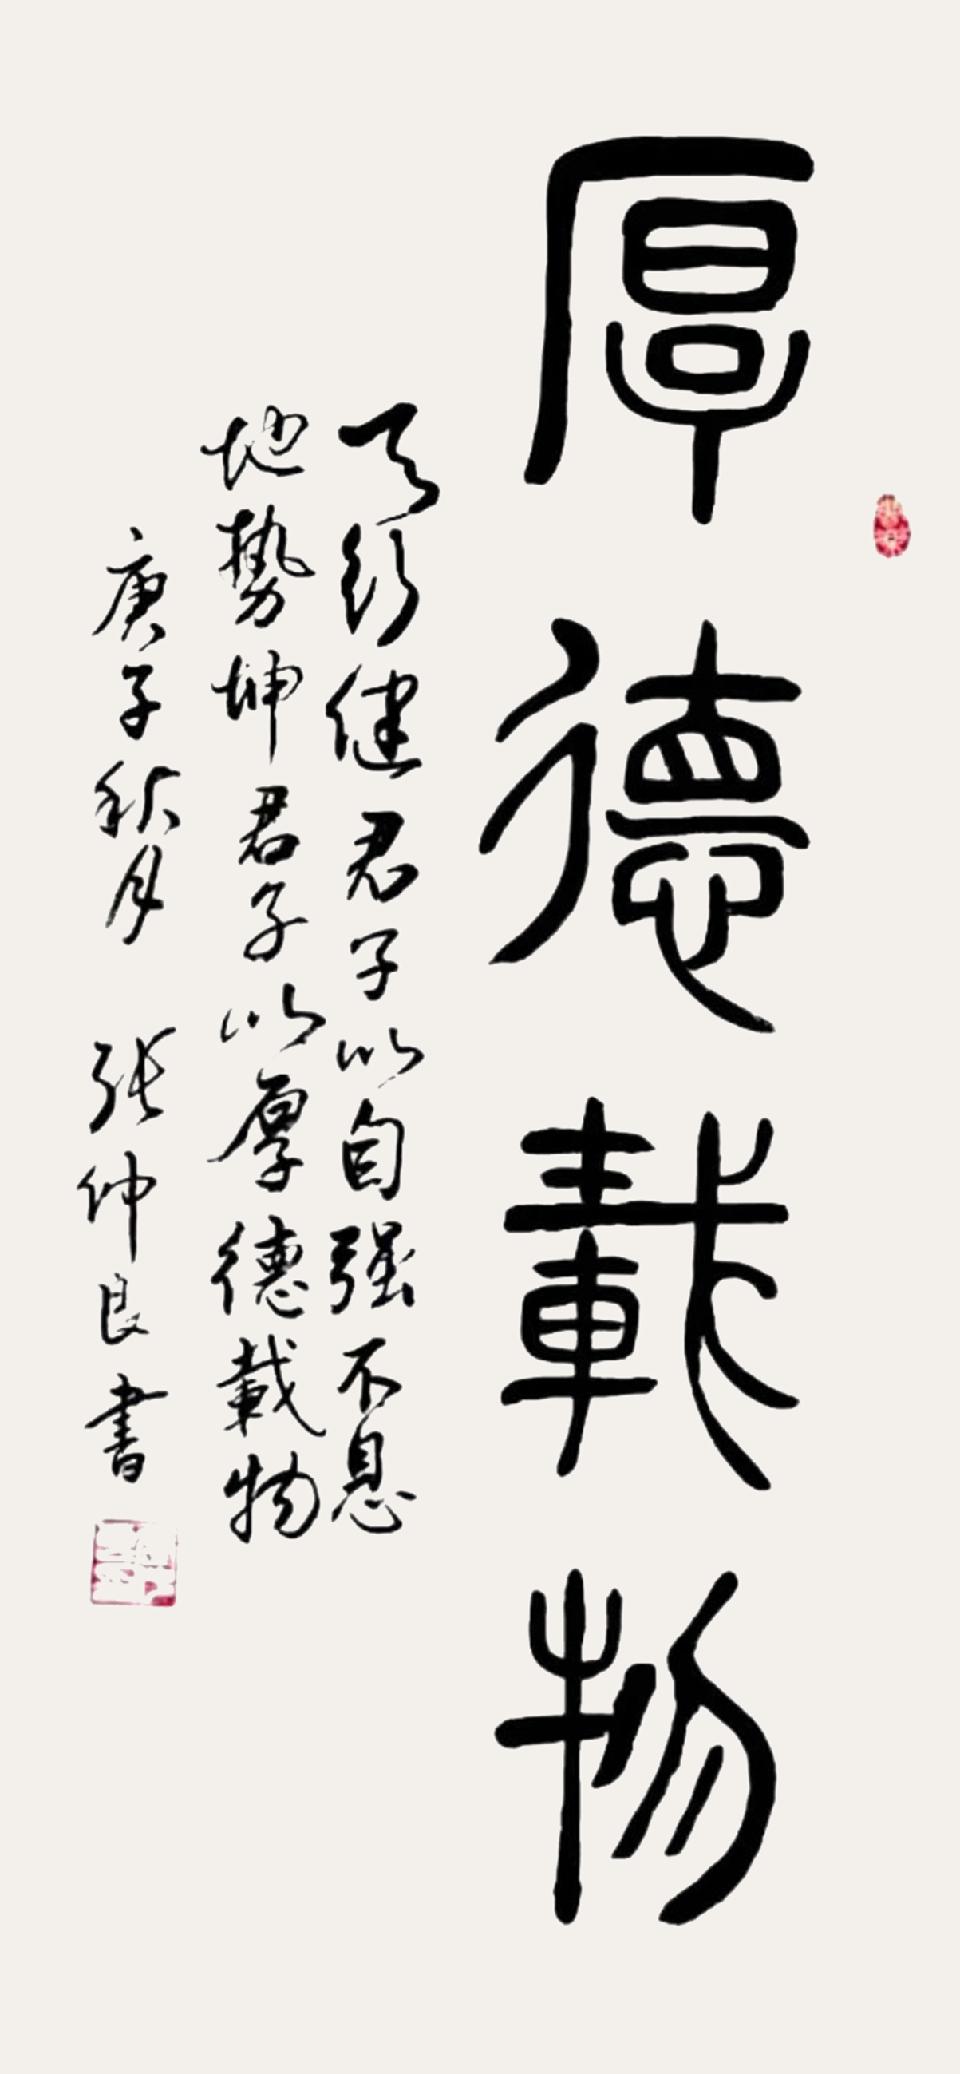 厚德載物
天行健君子以自强不息
地勢坤君子以厚德載物
庚子秋月 張仲良書